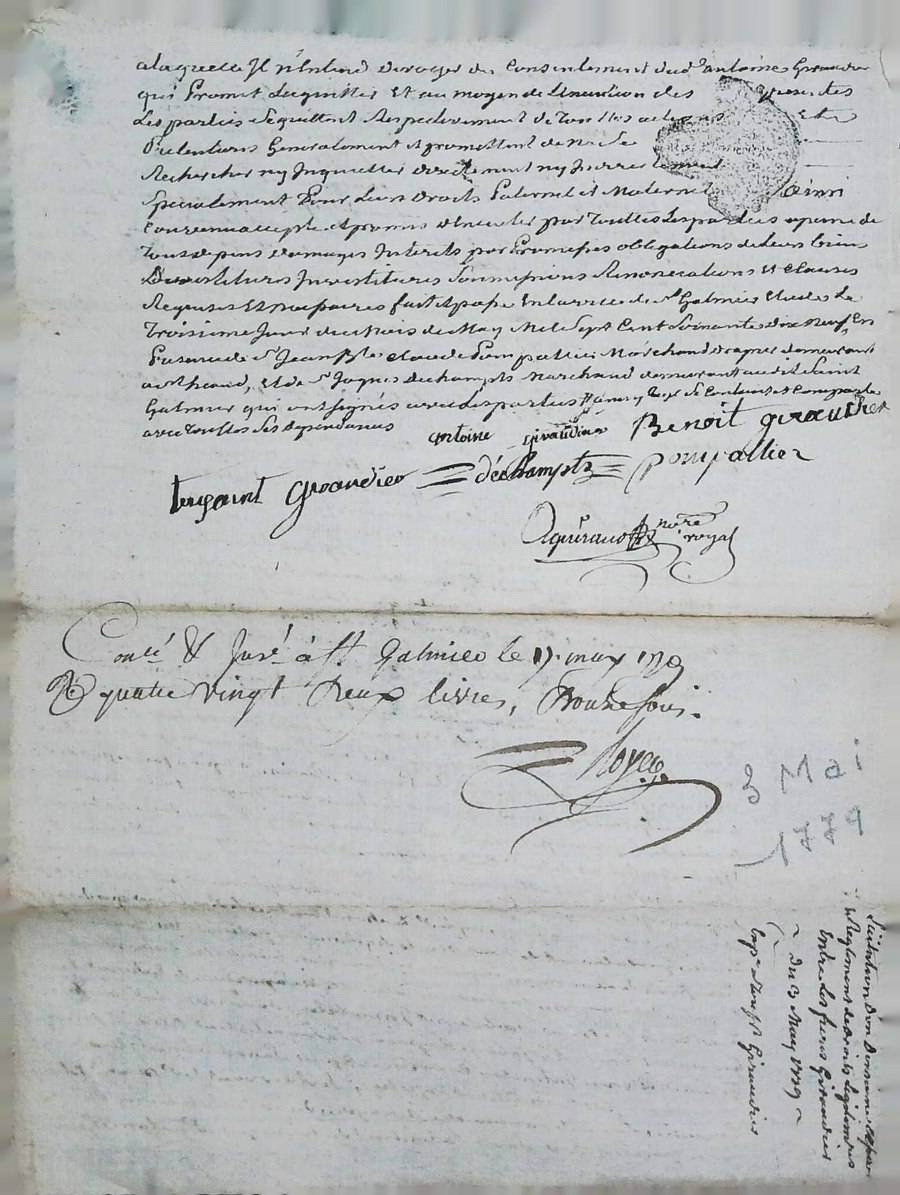 alaquelle Il n'Entend deroger du Consentement dud. Antoine Giraudier
qui Promet dequitter Et au moyen de Lexecution des presentes
Les parties Sequittent Respectivement de toutes actions Et
Pretentions Generalement et promettent de ne Se
Rechercher ny Inquietter directement ny Indirectement
Specialement Pour Leurs Droits Paternel et Maternel Ainsi
Convenu accepté et promis d'Executer par touttes Les parties a peine de
Tous depens domages Interets par Promesses obligations de Leurs biens
Investitures Soumissions Renonciations et Clauses
Requises Et fait et passé En de St. Galmier Etude Le
Troisieme Jour du Mois de May Mil Sept Cent Soixante dix Neuf, En
Presence de Sr. Jean Claude Pompallier Marchand demeurant
et de Sr. Jaques dechampts Marchand demurant audit Saint
Galmier qui ont signés avec Les parties
avec touttes Ses dependances
antoine giraudier Benoit giraudier
tousaint giraudier déchampts pompallier
nore. royal
Conté. & Jnsé. à St. Galmier le may
R quatre vingt Deux livres, Douze sous.
3 Mai
1779
Reglement de droits legitimes
Entre Les freres Giraudier
Du 3 May 1779
Giraudier